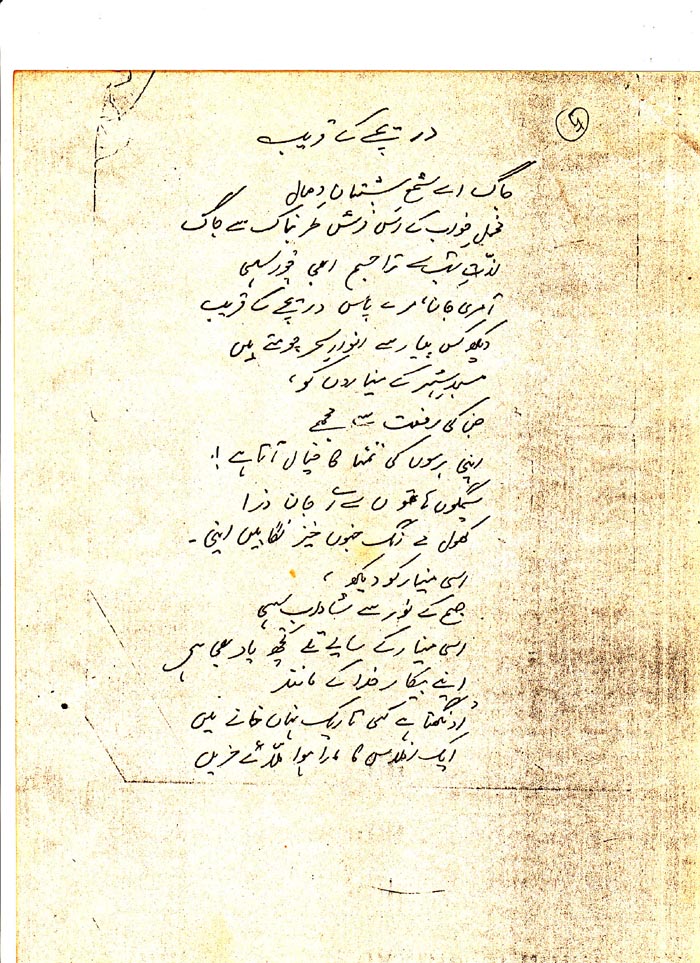 دریچے کے قریب
جاگ اے شمعِ شبستانِ وصال
محفلِ خواب کے اس فرشِ طربناک سے جاگ
لذّتِ شب سے ترا جسم ابھی چُور سہی
آ مری جان، مرے پاس دریچے کے قریب
دیکھ کس پیار سے انوارِ سحر چومتے ہیں
مسجدِ شہر کے میناروں کو،
جن کی رفعت سے مجھے
اپنی برسوں کی تمنا کا خیال آتا ہے!
سیمگوں ہاتھوں سے اے جان ذرا
کھول مے رنگ جنوں خیز نگاہیں اپنی۔
اسی مینار کو دیکھ،
صبح کے نور سے شاداب سہی
اسی مینار کے سایے تلے کچھ یاد بھی ہے
اپنے بیکار خدا کے مانند
اونگھتا ہے کسی تاریک نہاں خانے میں
ایک افلاس کا مارا ہوا ملّائے حزیں